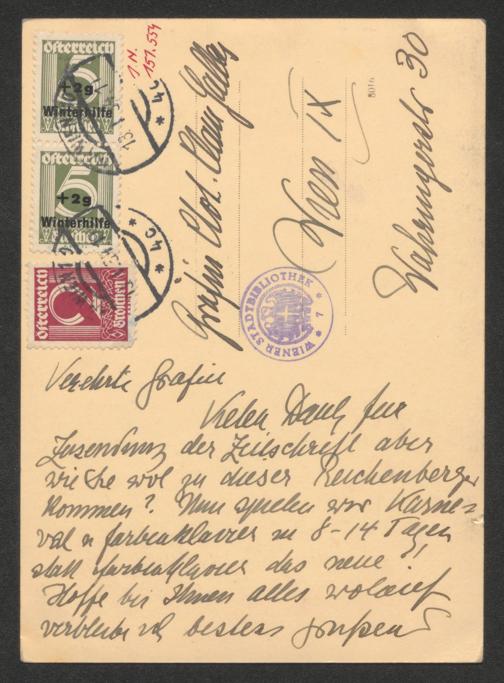 Österreich
5
+2g
Winterhilfe
Groschen
Österreich
5
+2g
Winterhilfe
Groschen
Österreich
2
Groschen
* 4c *
* 4c *
I.N.
151.554
Gräfin
Wien IX
Währingerstr 30
8016
WIENER STADTBIBLIOTHEK
* 7 *
Verehrte Gräfin
Vielen Dank für
Zusendung der Zeitschrift aber
wie Sie wol zu dieser Reichenberger
kommen? Nun spielen wir Karne-
val u farbenklavier in 8-14 Tagen
statt farbenklavier das neue!
Hoffe bei Ihnen alles wolauf
verbleibe ich bestens grüßend